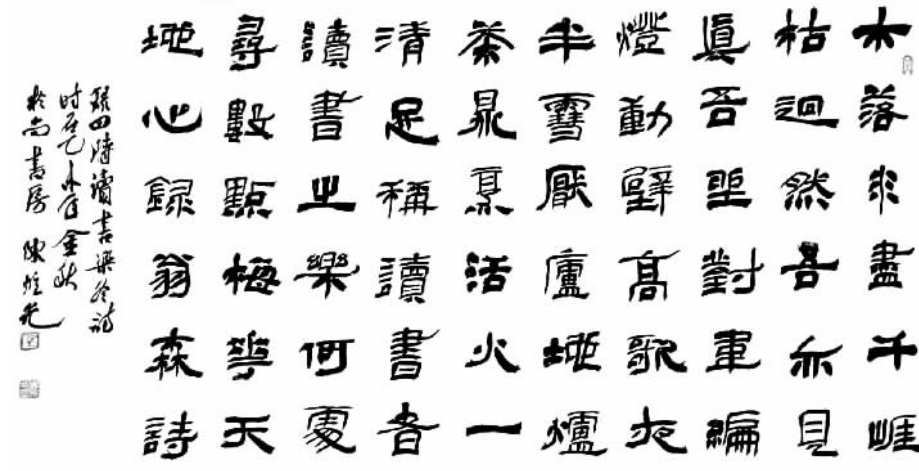 木落水盡千崖
枯迴然吾亦見
眞吾坐對韋編
燈動壁高歌夜
半雪厭廬地爐
茶鼎烹活火一
清足稱讀書者
讀書之樂何處
尋數點梅華天
地心録翁森詩
録四時讀書樂冬詩
时在乙未年金秋
於尚書房 陳